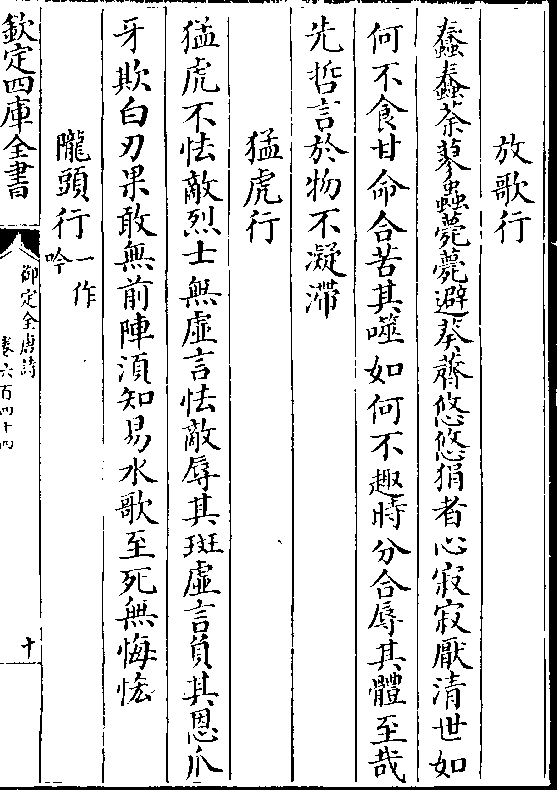 放歌行
蠢蠢荼蓼蟲薨薨避葵薺悠悠狷者心寂寂厭清世如
何不食甘命合苦其噬如何不趣時分合辱其體至哉
先哲言於物不凝滯
猛虎行
猛虎不怯敵烈士無虛言怯敵辱其斑虛言負其恩爪
牙欺白刃果敢無前陣須知易水歌至死無悔㤧
隴頭行一作吟
欽定四庫全書
御定全唐詩
卷六百四十四
十